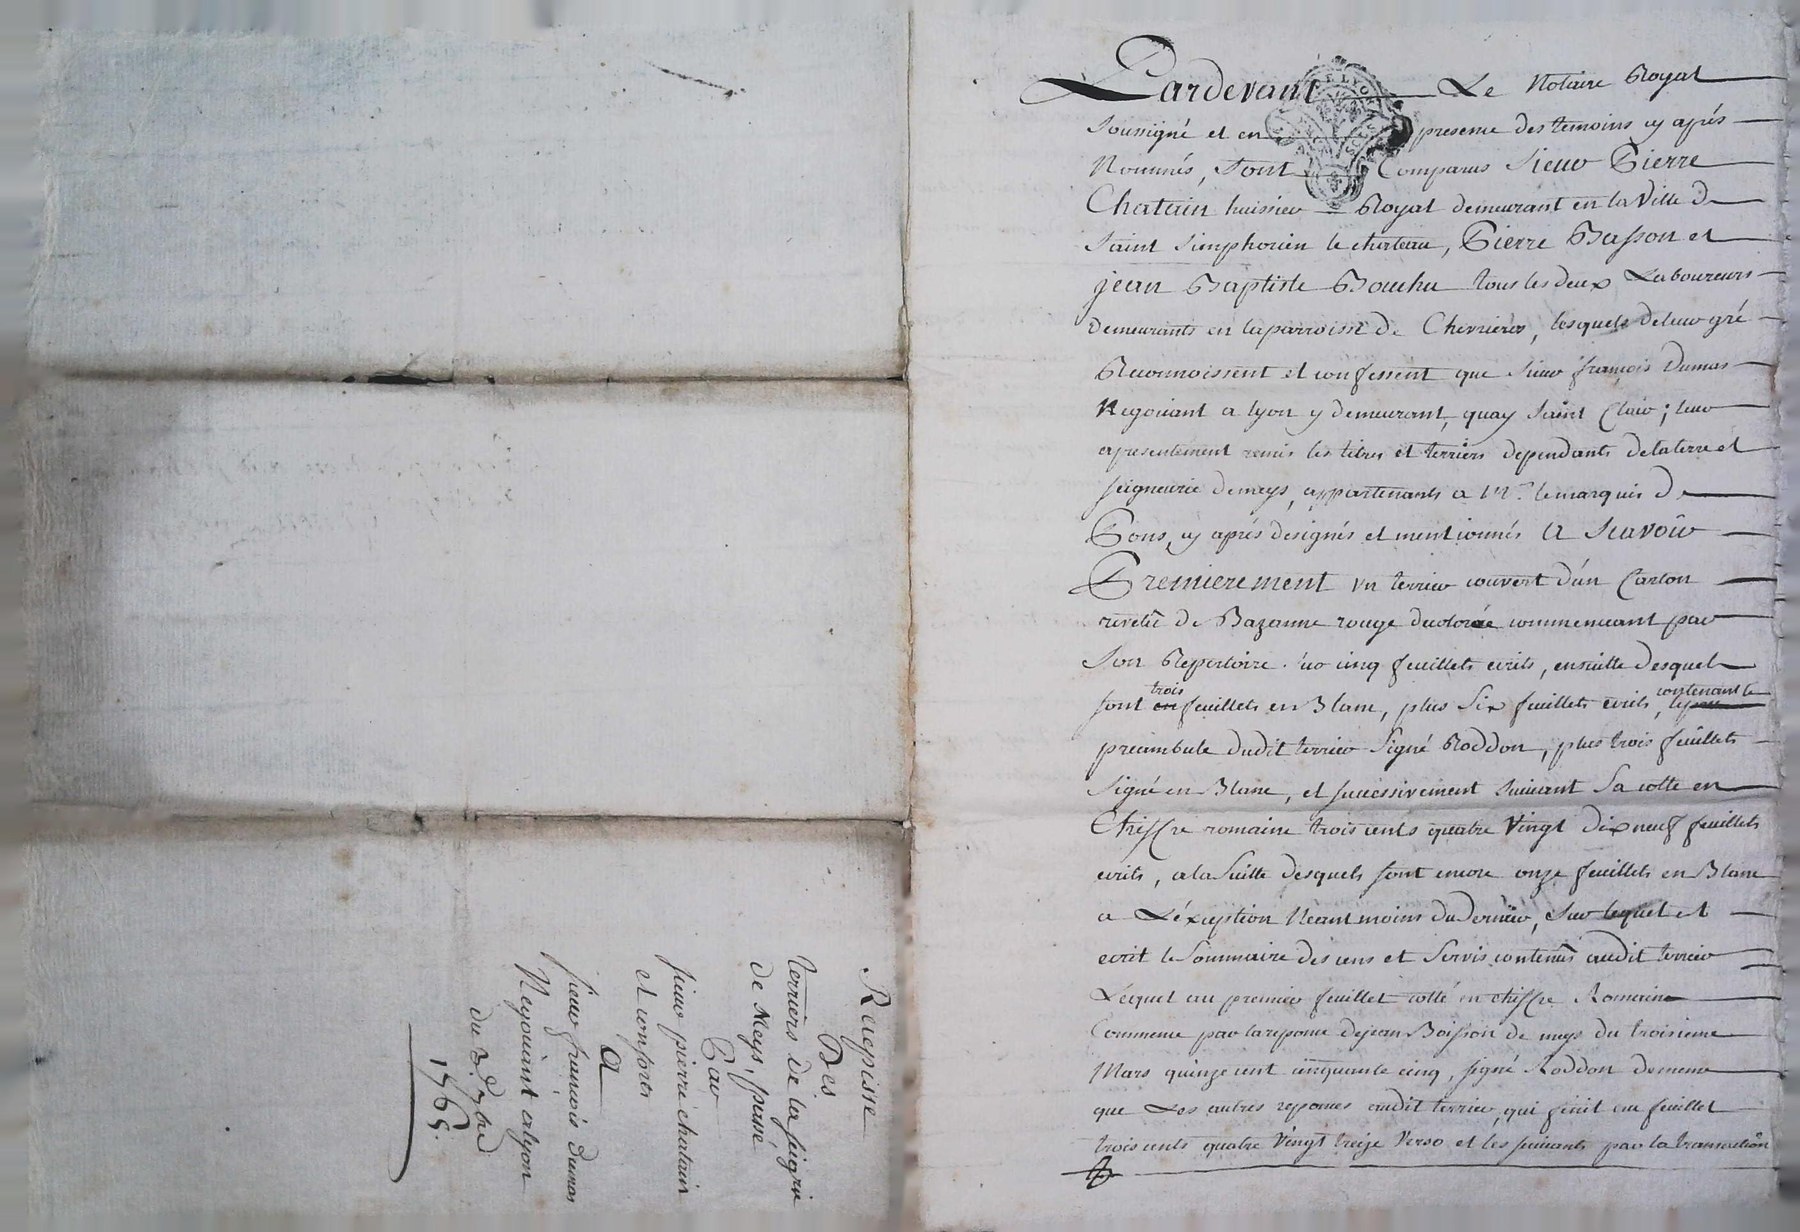 Recepisse
Des
terriers de la seigrie
de Meys, passé
Par
sieur pierre chatain
et consors
a
sieur francois dumas
Negociant a lyon
du 3e 7bre
1765.
Pardevant Le Notaire Royal
Soussigné et en presence des temoins cy aprés
Nommés, Sont Comparus Sieur Pierre
Chatain huissier Royal demeurant en la Ville De
Saint Simphorien le chateau, Pierre Basson et
jean Baptiste Bouchu tous les deux Laboureurs
Demeurants en la parroisse De Chevrieres, lesquels de leur gré
Reconnoissent et confessent que Sieur françois Dumas
Negociant a lyon y demeurant, quay Saint Clair; leur
a presentement remis les titres et terriers dependants de la terre et
seigneurie de meys, appartenants a Mr. le marquis De
Pons, cy aprés designés et mentionnés A Scavoir
Premierement un terrier couvert d'un Carton
revetu De Bazanne rouge decolorée commencant par
Son Repertoire cinq feuillets ecrits, ensuitte desquels
sont trois feuillets en Blanc, plus Six feuillets ecrits, contenant le
preambule dudit terrier Signé Roddon, plus trois feuillets
Signé en Blanc, et successivement Suivant Sa cotte en
Chiffre romaine trois cents quatre Vingt Dix neuf feuillets
ecrits, a la Suitte desquels sont encore onze feuillets en Blanc
a L'éxception Neant moins du Dernier, Sur lequel est
ecrit le Sommaire des cens et Servis contenus audit terrier
Lequel au premier feuillet cotté en chiffre Romaine
Commence par la reponse de jean Boisson de meys du troisieme
Mars quinze cent cinquante cinq, signé Roddon de meme
que Les autres reponses audit terrier, qui finit au feuillet
trois cents quatre Vingt treize Verso et les suivants par la transaction